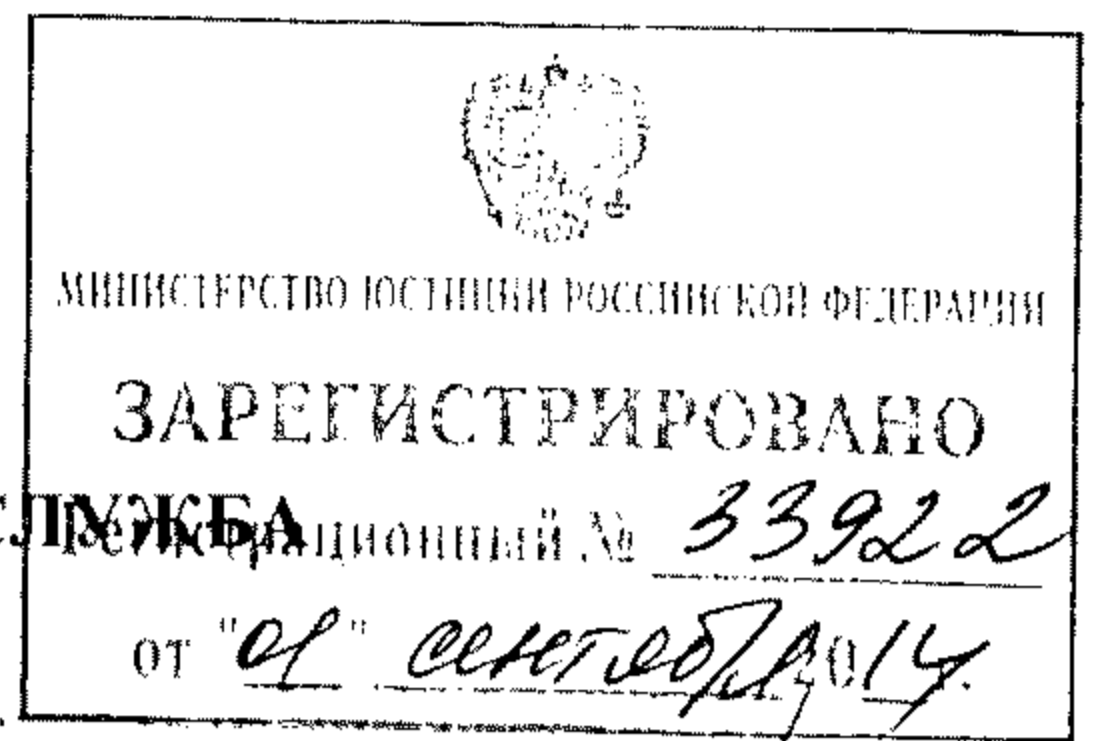 МИНИСТЕРСТВО ЮСТИЦИИ РОССИЙСКОЙ ФЕДЕРАЦИИ
ЗАРЕГИСТРИРОВАНО
СЛУЖБА
Регистрационный № 33922
от "01" сентября 2014.